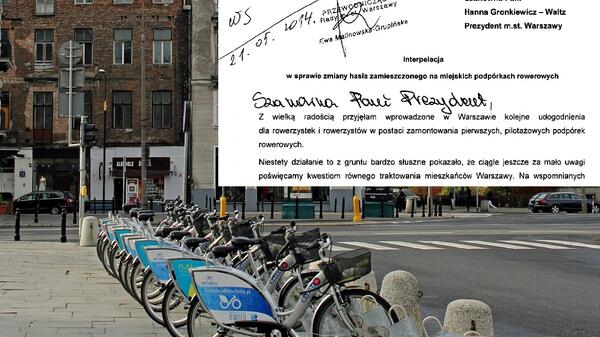 Hanna Gronkiewicz – Waltz
Prezydent m.st. Warszawy
WS
21.05.2014.
PRZEWODNICZĄCA
Rady m.st. Warszawy
Ewa Malinowska-Grupińska
Interpelacja
w sprawie zmiany hasła zamieszczonego na miejskich podpórkach rowerowych
Szanowna Pani Prezydent,
Z wielką radością przyjęłam wprowadzone w Warszawie kolejne udogodnienia
dla rowerzystek i rowerzystów w postaci zamontowania pierwszych, pilotażowych podpórek
rowerowych.
Niestety działanie to z gruntu bardzo słuszne pokazało, że ciągle jeszcze za mało uwagi
poświęcamy kwestiom równego traktowania mieszkańców Warszawy. Na wspomnianych